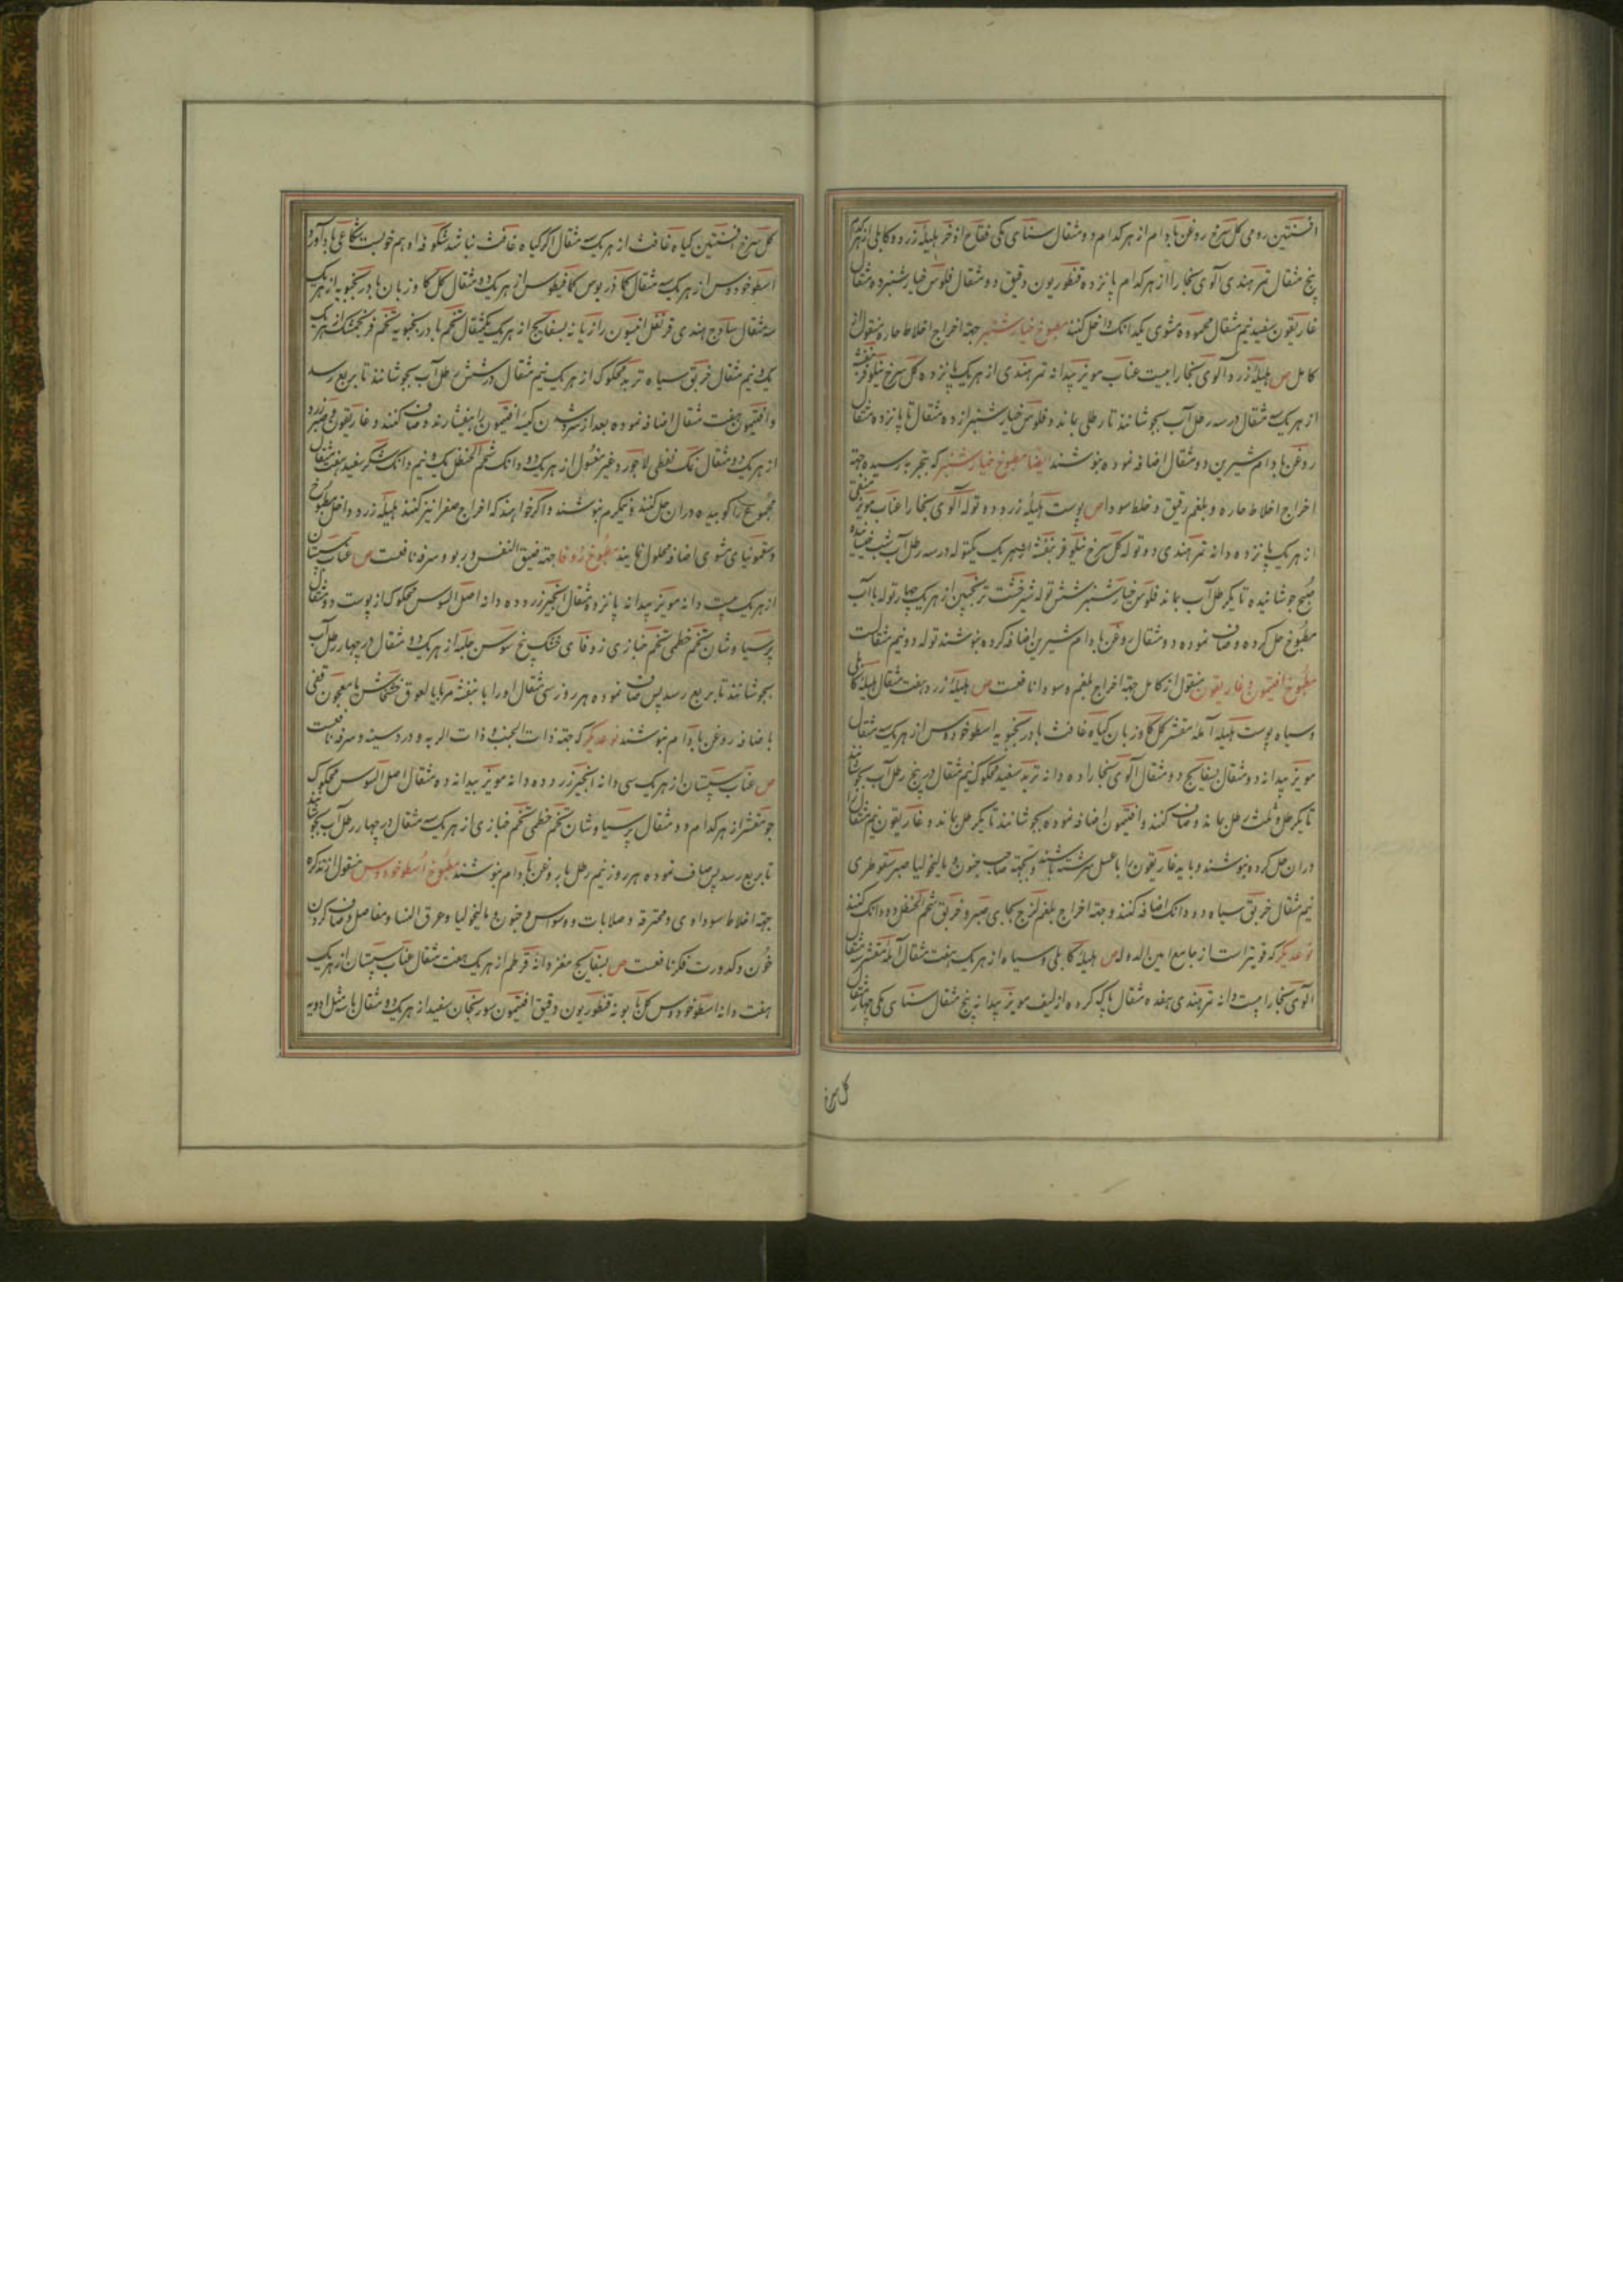 افسنتین رومی گل سرخ روغن بادام از هر کدام دو مثقال سنای مکی فقاح اذخر هلیلۀ زرد و کابلی از هر کدام
پنج مثقال تمر هندی آلوی بخارا از هر کدام پانزده قنطوریون دقیق دو مثقال فلوس خیار شنبر ده مثقال
غاریقون سفید نیم مثقال محموده مشوی یکدانک داخل کنند مطبوخ خیار شنبر جهة اخراج اخلاط حاره منقول از
کامل ص هلیلۀ زرد آلوی بخارا بیست عناب مویز بیدانه تمر هندی از هر یک پانزده گل سرخ نیلوفر بنفشه
از هر یک سه مثقال در سه رطل آب بجوشانند تا رطلی بماند و فلوس خیار شنبر از ده مثقال تا پانزده مثقال
روغن بادام شیرین دو مثقال اضافه نموده بنوشند ایضا مطبوخ خیار شنبر که بتجربه رسیده جهة
اخراج اخلاط حاره و بلغم رقیق و خلط سودا ص پوست هلیلۀ زرد دو توله آلوی بخارا عناب مویز منقی
از هر یک پانزده دانه تمر هندی دو توله گل سرخ نیلوفر بنفشه از هر یک یکتوله در سه رطل آب شب خیسانیده
صبح جوشانیده تا یکرطل آب بماند فلوس خیار شنبر شش توله شیرخشت ترنجبین از هر یک چهار توله با آب
مطبوخ حل کرده و صاف نموده دو مثقال روغن بادام شیرین اضافه کرده بنوشند توله دو نیم مثقالست
مطبوخ افتیمون و غاریقون منقول از کامل جهة اخراج بلغم و سودا نافعست ص هلیلۀ زرد هفت مثقال هلیلۀ کابلی
و سیاه پوست هلیله آملۀ مقشر گل گاوزبان گیاه غافث بادرنجبویه اسطوخودوس از هر یک سه مثقال
مویز بیدانه دو مثقال بسفایج دو مثقال آلوی بخارا ده دانه تربد سفید محکوک نیم مثقال در پنج رطل آب بجوشانند
تا یکرطل و ثلث رطل بماند و صاف کنند و افتیمون اضافه نموده بجوشانند تا یکرطل بماند و غاریقون نیم مثقال را
دران حل کرده بنوشند و باید غاریقون را با عسل سرشته باشند و بجهة صاحب جنون و مالیخولیا صبر سقوطری
نیم مثقال خربق سیاه دو دانک اضافه کنند و جهة اخراج بلغم لزج بجای صبر و خربق شحم الحنظل دو دانک کنند
نوعدیگر که قویتر است از جامع امین الدوله ص هلیلۀ کابلی و سیاه از هر یک هفت مثقال آملۀ مقشر مثقال
آلوی بخارا بیست دانه تمر هندی هفده مثقال پاکه کرده از لیف مویز بیدانه پنج مثقال سنای مکی چهار مثقال
گل سرخ
گل سرخ افسنتین گیاه غافث از هر یک سه مثقال اگر گیاه غافث نباشد شکوفۀ او هم خوبست شکاعی بادآورد
اسطوخودوس از هر یک سه مثقال کمادریوس کمافیطوس از هر یک دو مثقال گل گاوزبان بادرنجبویه از هر یک
سه مثقال ساذج هندی قرنفل انیسون رازیانه بسفایج از هر یک یکمثقال تخم بادرنجبویه تخم فرنجمشک از هر یک
یک و نیم مثقال خربق سیاه تربد محکوک از هر یک نیم مثقال در شش رطل آب بجوشانند تا بربع رسد
و افتیمون هفت مثقال اضافه نموده بعد از سرد شدن کیسۀ افتیمون را بیفشارند و صاف کنند و غاریقون و صبر زرد
از هر یک دو مثقال نمک نفطی لاجورد غیر مغسول از هر یک دو دانک شحم الحنظل یک و نیم دانک شکر سفید هفت مثقال
مجموع را کوبیده دران حل کنند و نیمگرم بنوشند و اگر خواهند که اخراج صفرا نیز کنند هلیلۀ زرد داخل مطبوخ
و سقمونیای مشوی اضافه محلول نمایند مطبوخ زوفا جهة ضیق النفس و ربو و سرفه نافعست ص عناب سپستان
از هر یک بیست دانه مویز بیدانه پانزده مثقال انجیر زرد ده دانه اصل السوس محکوک از پوست دو مثقال
پرسیاوشان تخم خطمی تخم خبازی زوفای خشک بیخ سوسن حلبه از هر یک دو مثقال در چهار رطل آب
بجوشانند تا بربع رسد پس صاف نموده هر روز سی مثقال او را با بنفشه مربا یا لعوق خشخاش یا معجون قفی
باضافه روغن بادام بنوشند نوعدیگر که جهة ذات الجنب و ذات الریه و درد سینه و سرفه نافعست
ص عناب سپستان از هر یک سی دانه انجیر زرد ده دانه مویز بیدانه ده مثقال اصل السوس محکوک
جو مقشر از هر کدام دو مثقال پرسیاوشان تخم خطمی تخم خبازی از هر یک سه مثقال در چهار رطل آب بجوشانند
تا بربع رسد پس صاف نموده هر روز نیم رطل با روغن بادام بنوشند مطبوخ اسطوخودوس منقول از تذکره
جهة اخلاط سوداوی و محترقه و صلابات و وسواس و جنون و مالیخولیا و عرق النسا و مفاصل و صاف کردن
خون و کدورت فکر نافعست ص بسفایج مغز دانۀ قرطم از هر یک هفت مثقال عناب سپستان از هر یک
هفت دانه اسطوخودوس گل بابونه قنطوریون دقیق افتیمون سورنجان سفید از هر یک دو مثقال با سه مثل ادویه